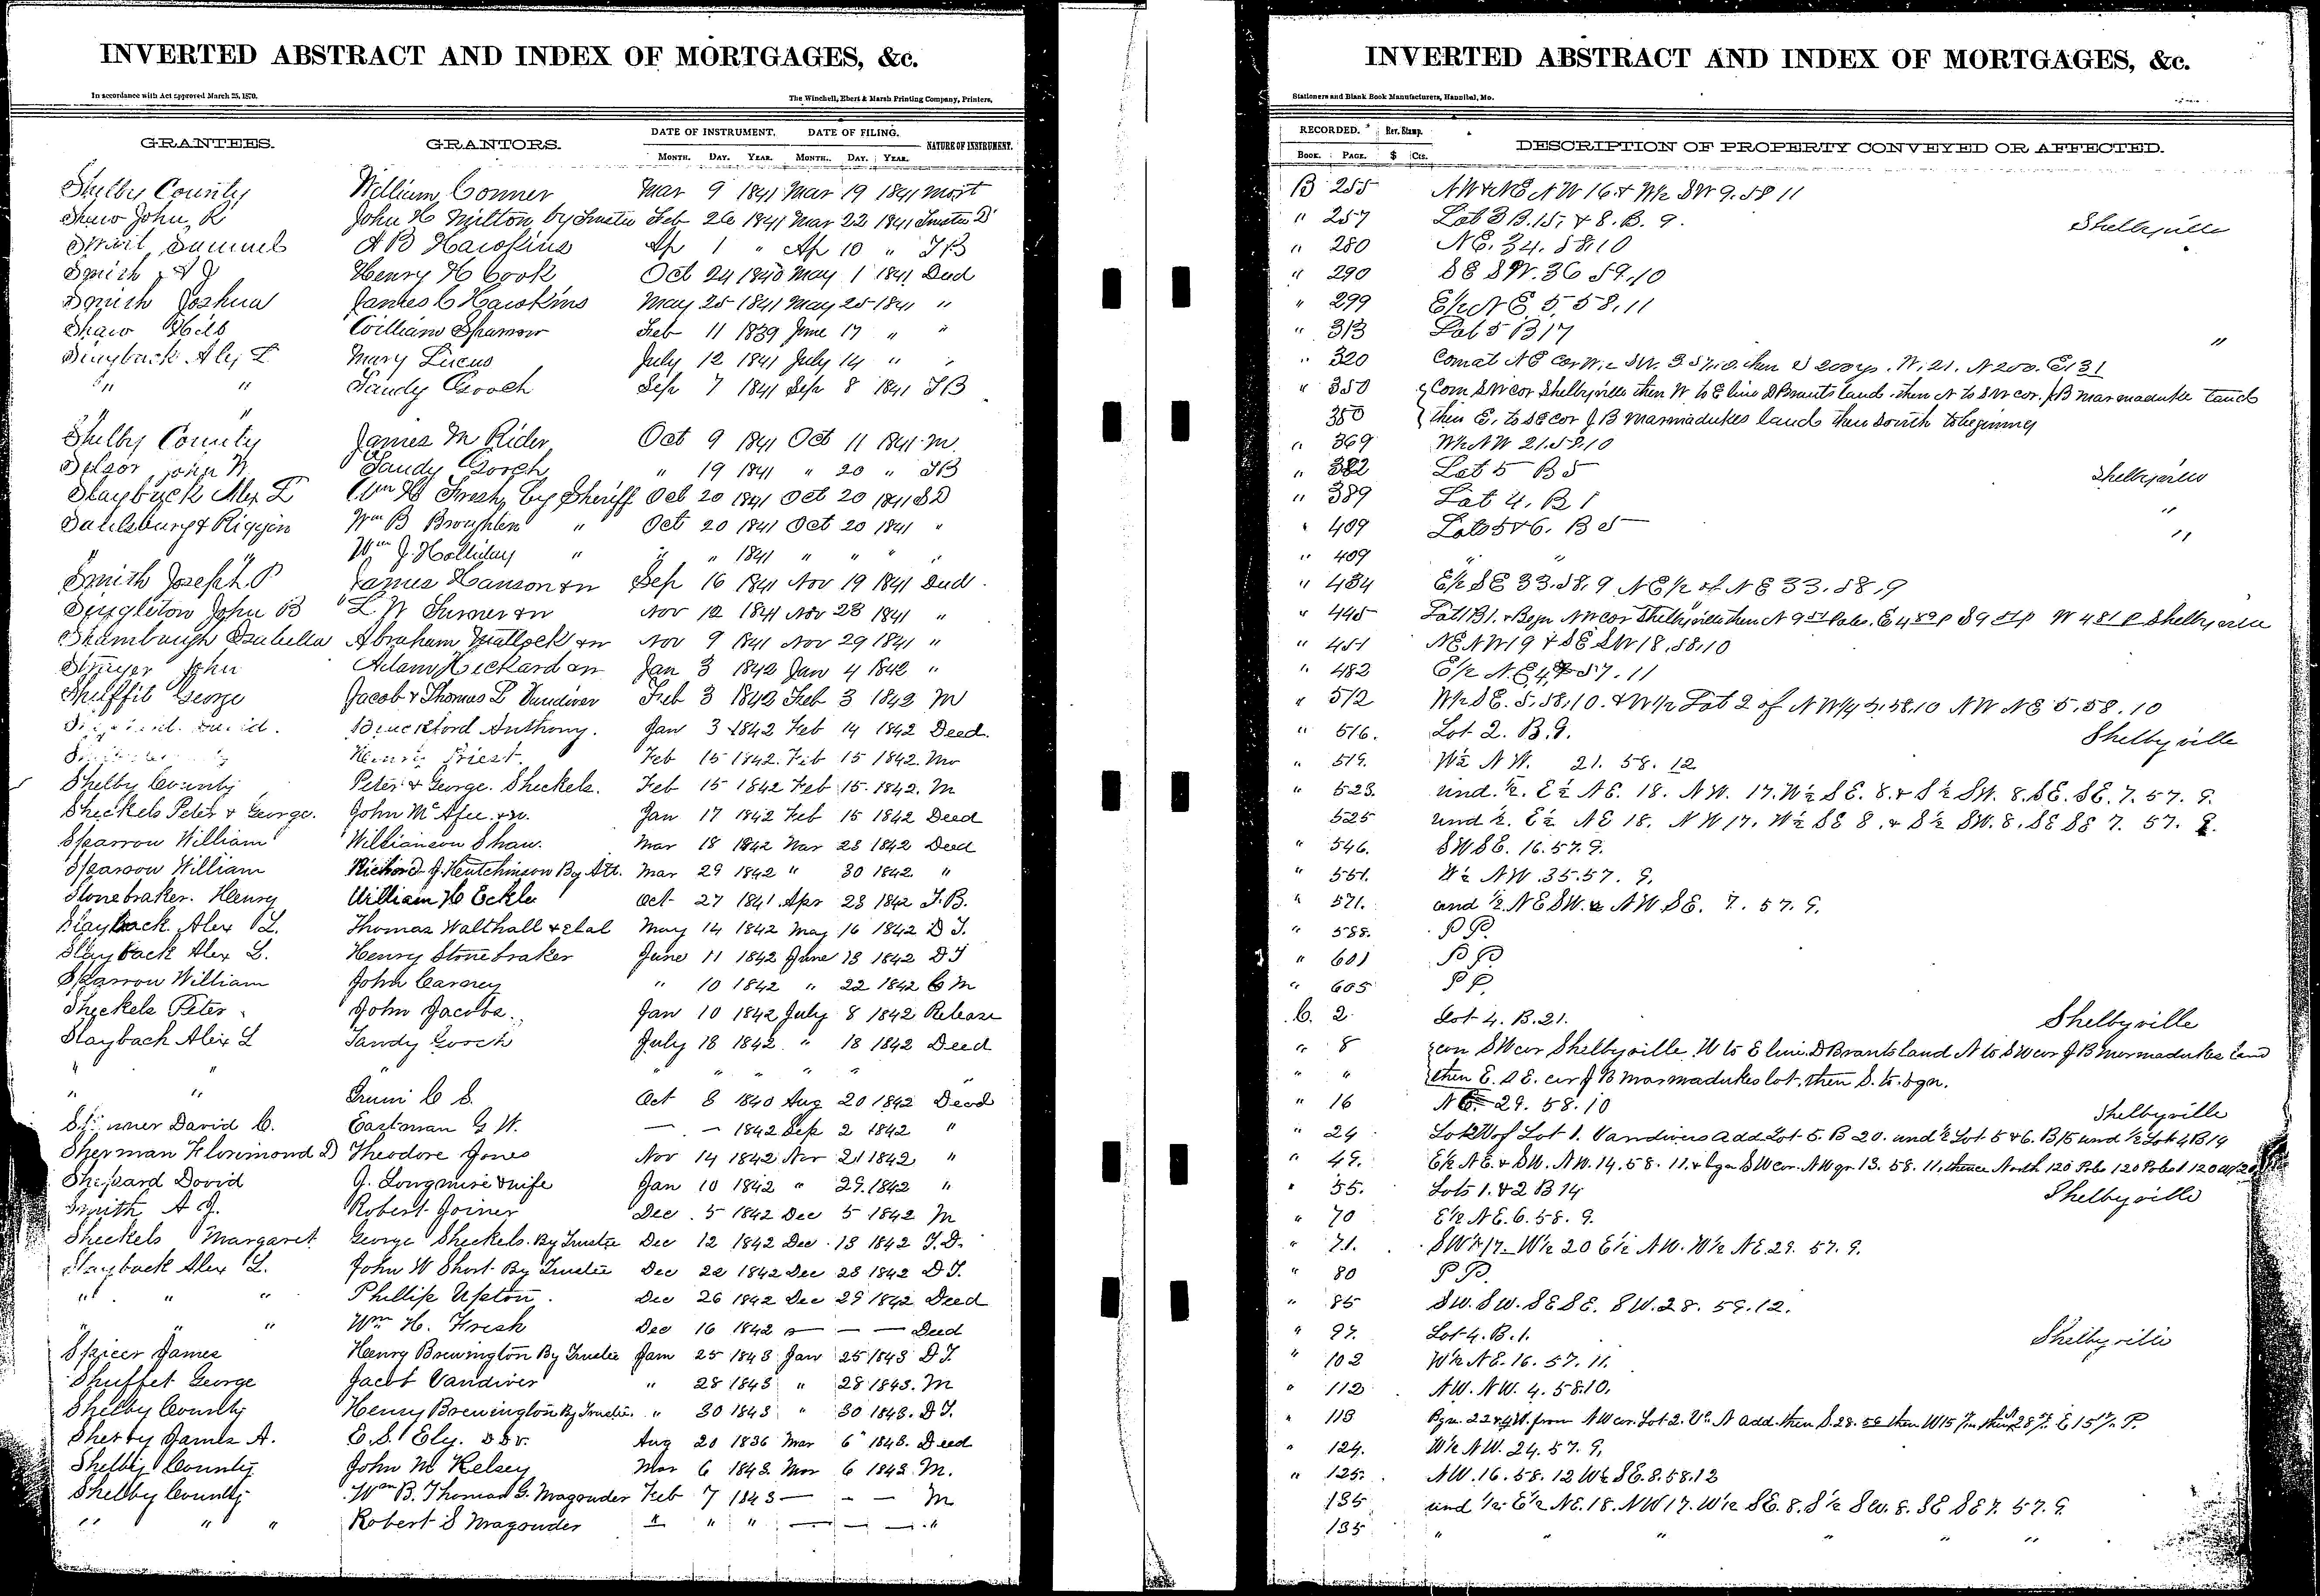 INVERTED ABSTRACT AND INDEX OF MORTGAGES, &c.
In accordance with Act approved March 25, 1870.
The Winchell, Ebert & Marsh Printing Company, Printers,
GRANTEES. GRANTORS. DATE OF INSTRUMENT. DATE OF FILING. NATURE OF INSTRUMENT.
MONTH. DAY. YEAR. MONTH. DAY. YEAR.
Shelby County William Conner Mar 9 1841 Mar 19 1841 Mort
Shaw John R John H Milton by Trustee Feb 26 1841 Mar 22 1841 Trustee D
Samuel A B Hawkins Ap 1 " Ap 10 " TB
Smith A J Henry H Cook Oct 24 1840 May 1 1841 Deed
Smith Joshua James C Hawkins May 25 1841 May 25 1841 "
Shaw William Sparrow Feb 11 1839 June 17 " "
Slayback Alex L Mary Lucas July 12 1841 July 14 " "
" " Sandy Gooch Sep 7 1841 Sep 8 1841 TB
"
Shelby County James M Rider Oct 9 1841 Oct 11 1841 M
Selsor John W Sandy Gooch " 19 1841 " 20 " TB
Slayback Alex L Wm H Fresh, by Sheriff Oct 20 1841 Oct 20 1841 SD
Saulsbury & Riggin Wm B Broughton " Oct 20 1841 Oct 20 1841 "
" Wm J. Holliday " " " 1841 " " " "
Smith Joseph P James Hanson & w Sep 16 1841 Nov 19 1841 Deed
Singleton John B L. W Sumner & w Nov 12 1841 Nov 23 1841 "
Shambaugh Isabella Abraham Matlock & w Nov 9 1841 Nov 29 1841 "
Strayer John Adam Heckard & w Jan 3 1842 Jan 4 1842 "
Shuffit George Jacob & Thomas L Vandiver Feb 3 1842 Feb 3 1842 M
Buckford Anthony. Jan 3 1842 Feb 14 1842 Deed.
Henry Priest. Feb 15 1842. Feb 15 1842. Mo
Shelby County Peter & George. Sheckels. Feb 15 1842 Feb 15. 1842. M
Sheckels Peter & George. John McAfee. & w. Jan 17 1842 Feb 15 1842 Deed
Sparrow William Williamson Shaw. Mar 18 1842 Mar 28 1842 Deed
Sparrow William Richard J. Hutchinson By Att. Mar 29 1842 " 30 1842 "
Stonebraker. Henry William H Eckle Oct 27 1841 Apr 28 1842 T.B.
Slayback. Alex L. Thomas Walthall & etal May 14 1842 May 16 1842 D T.
Slayback Alex L. Henry Stonebraker June 11 1842 June 13 1842 D T
Sparrow William John Carney " 10 1842 " 22 1842 C M
Sheckels Peter John Jacobs. Jan 10 1842 July 8 1842 Release
Slayback Alex L Sandy Gooch July 18 1842 " 18 1842 Deed
" " " " " "
" " C S. Oct 8 1840 Aug 20 1842 Deed
David C. Eastman G W. — — 1842 Sep 2 1842 "
Sherman Florimond D Theodore Jones Nov 14 1842 Nov 21 1842 "
Shepard David J. Longmire & wife Jan 10 1842 " 29. 1842 "
Smith A J. Robert Joiner Dec 5 1842 Dec 5 1842 M
Sheckels Margaret George Sheckels. By Trustee Dec 12 1842 Dec 13 1842 T.D.
Slayback Alex L. John W Short By Trustee Dec 22 1842 Dec 28 1842 D T.
" " " Phillip Upton. Dec 26 1842 Dec 29 1842 Deed
" " " Wm H. Fresh Dec 16 1842 — — — Deed
Spicer James Henry Brewington By Trustee Jan 25 1843 Jan 25 1843 D T.
Shuffet George Jacob Vandiver " 28 1843 " 28 1843. M
Shelby County Henry Brewington By Trustee. " 30 1843 " 30 1843. D T.
Shelby James A. E. S. Ely. Aug 20 1836 Mar 6 1843. Deed
Shelby County John M Kelsey Mar 6 1843. Mar 6 1843. M.
Shelby County Wm B. Thomas G. Magouder Feb 7 1843 — — — M
" " " Robert S Magouder " " " — — — "
INVERTED ABSTRACT AND INDEX OF MORTGAGES, &c.
Stationers and Blank Book Manufacturers, Hannibal, Mo.
RECORDED. Rev. Stamp. DESCRIPTION OF PROPERTY CONVEYED OR AFFECTED.
BOOK. PAGE. $ Cts.
B 255 NW & NE NW 16 & W½ SW 9. 58 11
" 257 Lot 3 B. 15, & 8. B. 9. Shelbyville
" 280 NE. 34. 58.10
" 290 SE SW. 36 59.10
" 299 E½ NE 5 58, 11
" 313 Lot 5 B 17 "
" 320
" 350 Com SW cor Shelbyville then W to E line D Brants land, then N to SW cor. J B Marmaduke land
350 then E. to SE cor J B Marmadukes land then South to beginning
" 369 W½ NW 21.58.10
" 382 Lot 5 B 5 Shelbyville
" 389 Lot 4. B 1 "
" 409 Lots 5 & 6. B 5 "
" 409 " "
" 434 E½ SE 33.58.9 NE½ of NE 33.58.9
" 445 Shelbyville
" 451 NE NW 19 & SE SW 18.58.10
" 482 E½ NE 4, 57.11
" 512 W½ SE. 5.58.10. & W½ Lot 2 of NW¼ 5.58.10 NW NE 5.58.10
" 516. Lot 2. B. 9. Shelbyville
" 519. W½ NW. 21. 58. 12
" 523. und. ½. E½ NE. 18. NW. 17. W½ SE. 8. & S½ SW. 8. SE. SE. 7. 57. 9.
525 und ½. E½ NE 18. NW 17. W½ SE 8. & S½ SW. 8. SE SE 7. 57. 9.
" 546. SW SE. 16. 57. 9.
" 551. W½ NW. 35. 57. 9.
" 571. and ½. NE SW. & NW SE. 7. 57. 9.
" 588. P P.
" 601 P P.
" 605 P P.
C. 2 Lot 4. B. 21. Shelbyville
" 8 con SW cor Shelbyville W to E line D Brants land N to SW cor J B Marmadukes land
" " then E. S E. cor J B Marmadukes lot, then S. to bgn.
" 16 NE 29. 58. 10 Shelbyville
" 24 of Lot 1. Vandivers Add. Lot 5. B 20. und ½ Lot 5 & 6. B 15 und ½ Lot 4 B 14
" 49. E½ NE. & SW. NW. 14. 58. 11. & bgn SW cor. NW qr. 13. 58. 11, thence North 120 Poles
" 55. Lots 1. & 2 B 14 Shelbyville
" 70 E½ NE. 6. 58. 9.
" 71. SW¼ 17 W½ 20 E½ NW. W½ NE. 29. 57. 9.
" 80 P P.
" 85 SW. SW. SE SE. SW. 28. 59. 12.
" 97. Lot 4. B. 1. Shelbyville
" 102 W½ NE. 16. 57. 11.
" 112 NW. NW. 4. 58.10.
" 113
" 124. W½ NW. 24. 57. 9.
" 125. NW. 16. 58. 12 W½ SE. 8. 58. 12
135 und ½ E½ NE. 18. NW 17. W½ SE. 8. S½ SW. 8. SE SE 7. 57. 9.
135 " " " " "